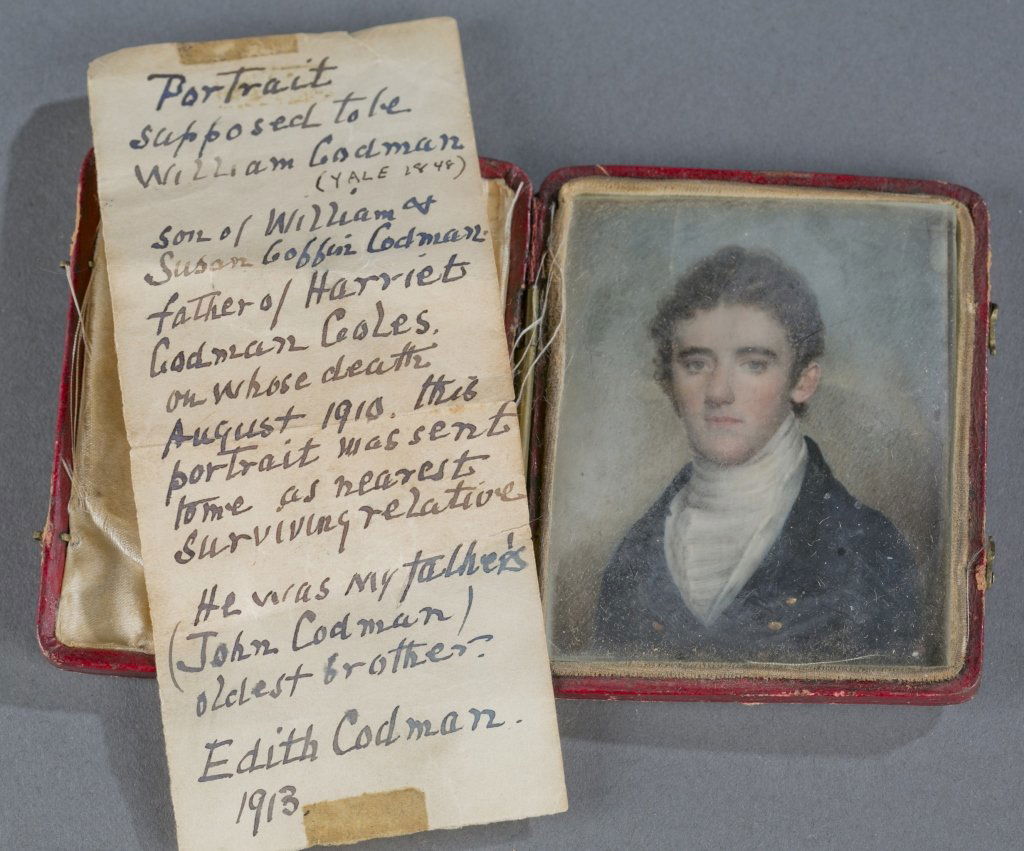 Portrait
supposed to be
William Codman
(YALE 1848)
son of William &
Susan Coffin Codman.
father of Harriet
Codman Coles.
on whose death
August 1910. this
portrait was sent
to me as nearest
surviving relative
He was my father's
(John Codman)
oldest brother.
Edith Codman.
1913.